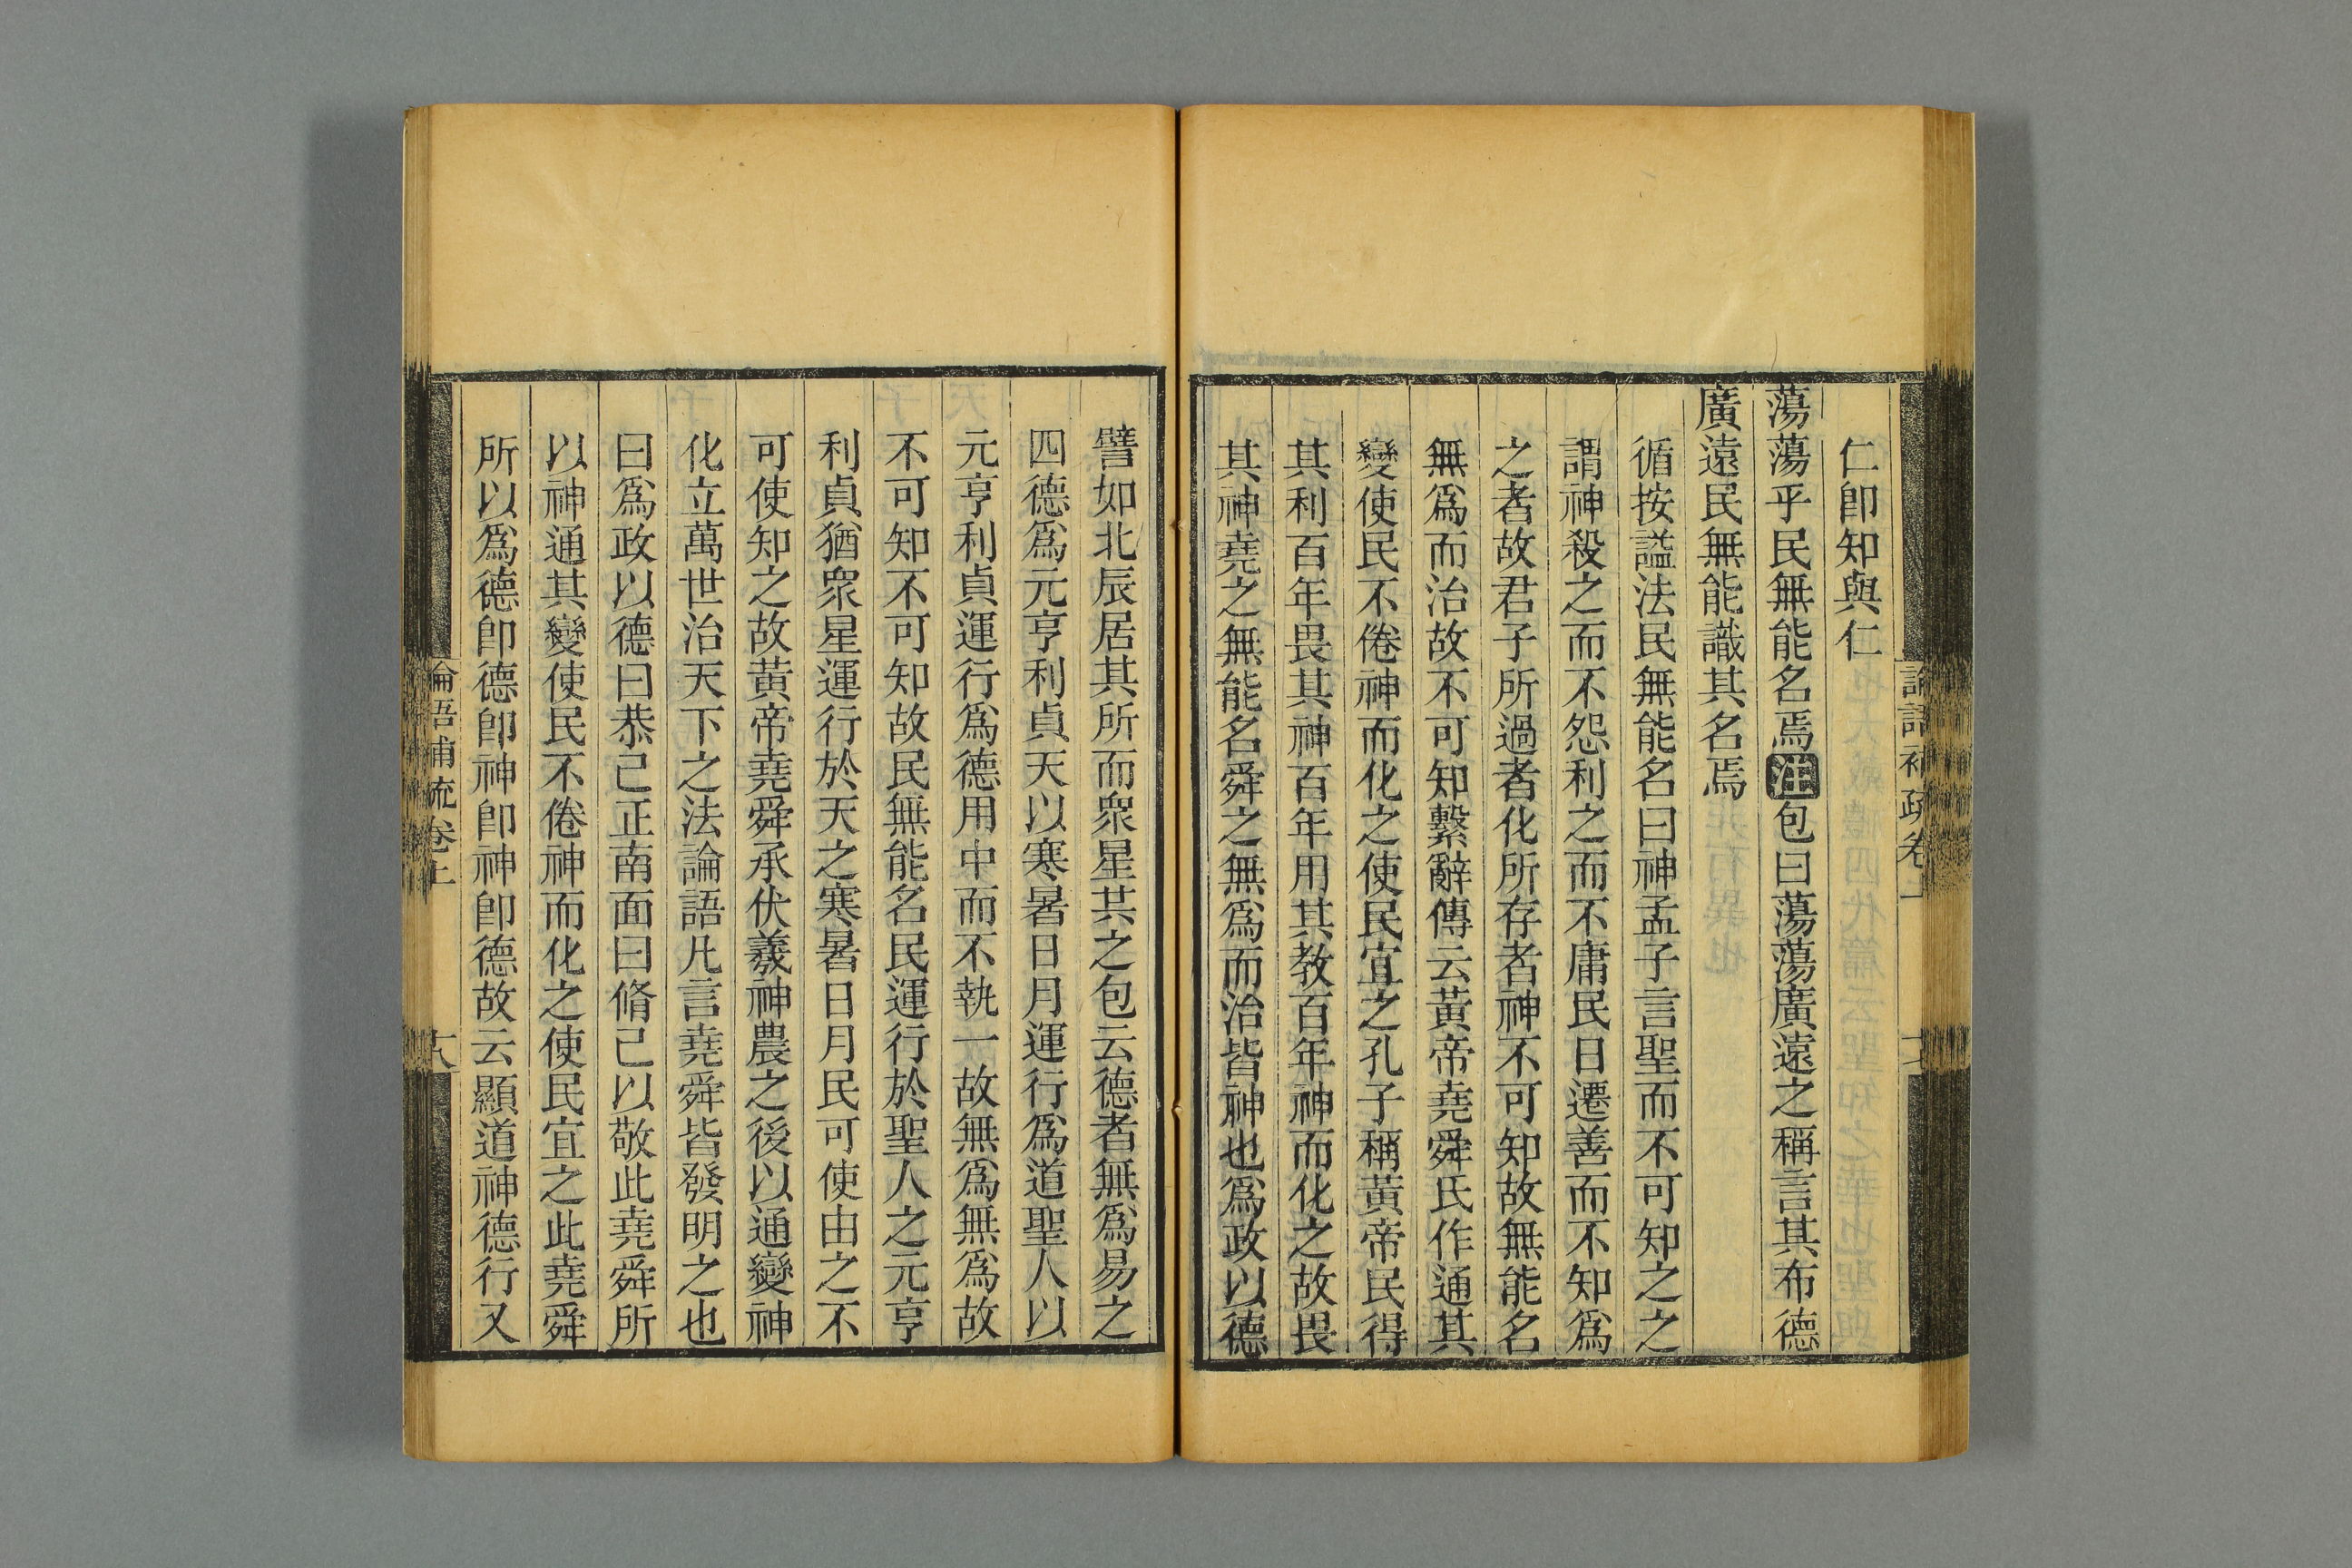 仁卽知與仁
蕩蕩乎民無能名焉注包曰蕩蕩廣遠之稱言其布德
廣遠民無能識其名焉
循按謚法民無能名曰神孟子言聖而不可知之之
謂神殺之而不怨利之而不庸民日遷善而不知爲
之者故君子所過者化所存者神不可知故無能名
無爲而治故不可知繫辭傳云黃帝堯舜氏作通其
變使民不倦神而化之使民宜之孔子稱黃帝民得
其利百年畏其神百年用其教百年神而化之故畏
其神堯之無能名舜之無爲而治皆神也爲政以德
譬如北辰居其所而衆星共之包云德者無爲易之
四德爲元亨利貞天以寒暑日月運行爲道聖人以
元亨利貞運行爲德用中而不執一故無爲無爲故
不可知不可知故民無能名民運行於聖人之元亨
利貞猶衆星運行於天之寒暑日月民可使由之不
可使知之故黃帝堯舜承伏羲神農之後以通變神
化立萬世治天下之法論語凡言堯舜皆發明之也
曰爲政以德曰恭己正南面曰脩己以敬此堯舜所
以神通其變使民不倦神而化之使民宜之此堯舜
所以爲德卽德卽神卽神卽德故云顯道神德行又
論語補疏卷上